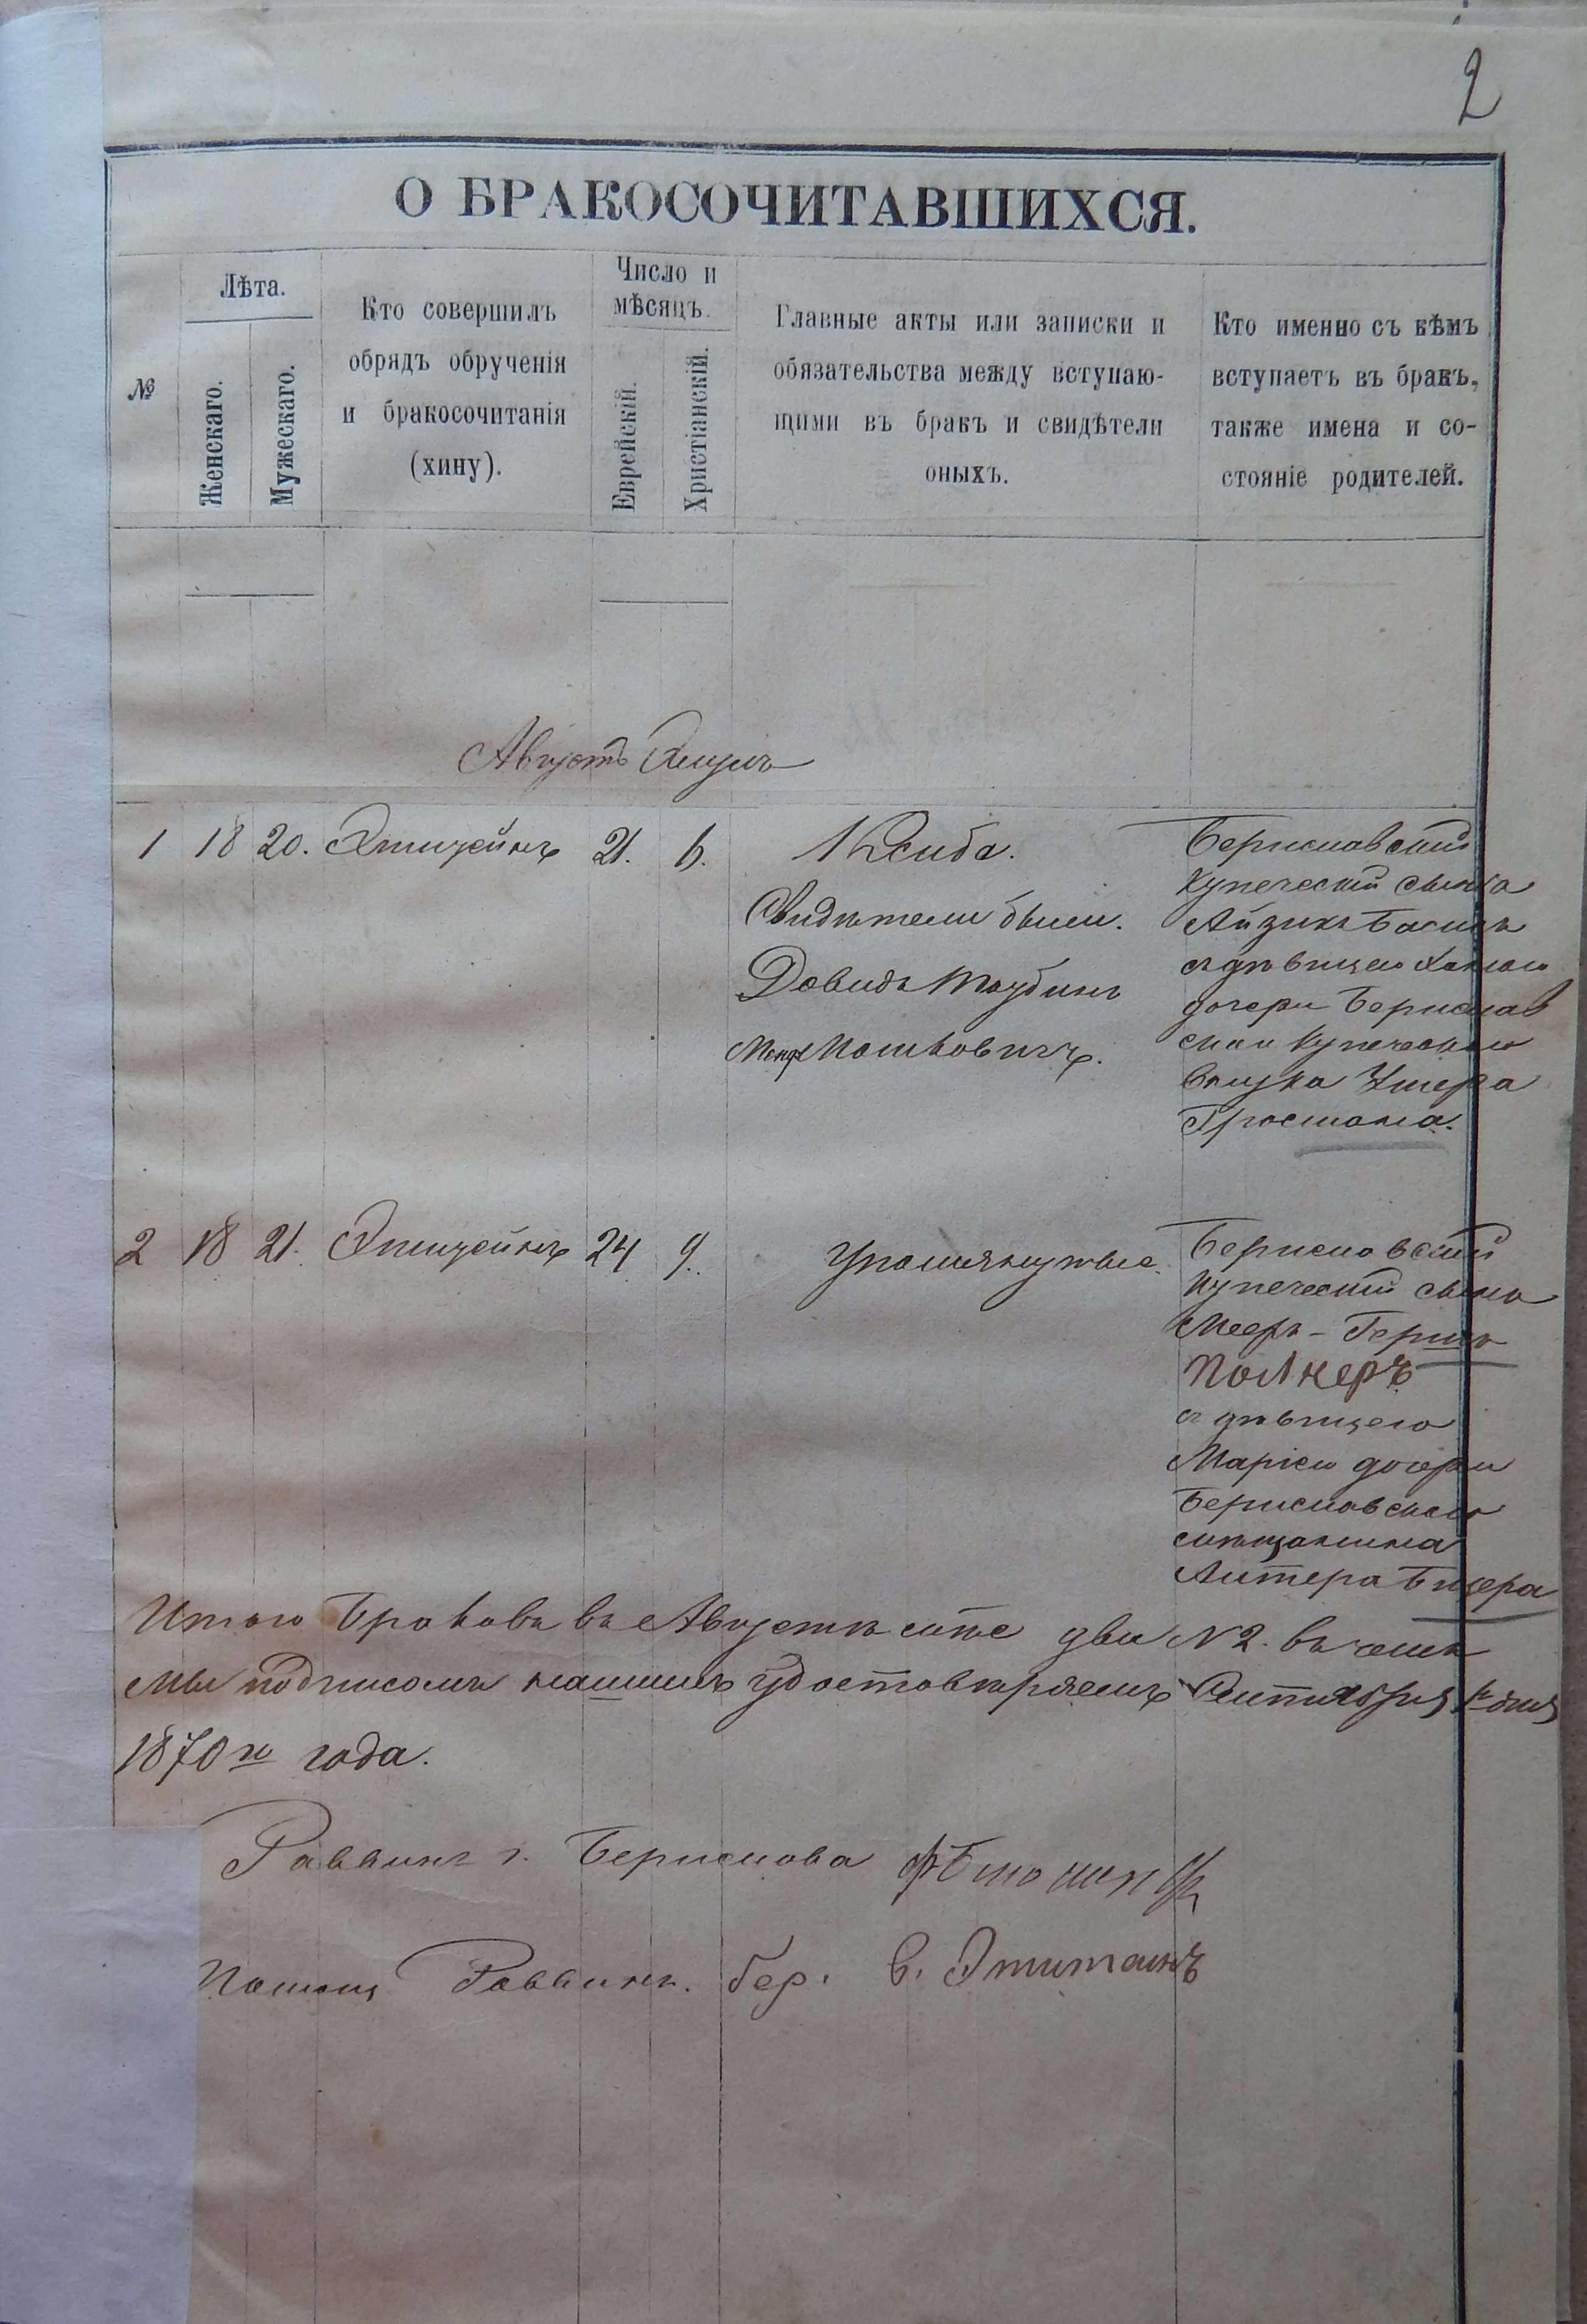 2
О БРАКОСОЧИТАВШИХСЯ.
№
Лѣта.
Женскаго.
Мужескаго.
Кто совершилъ
обрядъ обрученія
и бракосочитанія
(хину).
Число и
мѣсяцъ.
Еврейскій.
Христіанскій.
Главные акты или записки и
обязательства между вступаю-
щими въ бракъ и свидѣтели
оныхъ.
Кто именно съ кѣмъ
вступаетъ въ бракъ,
также имена и со-
стояніе родителей.
Августъ Элулъ
1 18 20. 21. 6. 1 Ксиба.
Свидѣтели были.
Довидъ Таубинъ
Мошковичъ.
Бериславский
Купеческий сынъ
Айзикъ
съ дѣвицею Ханою
дочери Берислав
скаго Купеческаго
внука Ушера
2 18 21. 24 9. Упомянутые.
Бериславский
Купеческий сынъ
Мееръ-Гершъ
Полнеръ
съ дѣвицею
Маріею дочери
Бериславскаго
мѣщанина
Литера
Итого Браковъ въ Августѣ мѣсе два №2. въ чемъ
мы подписомъ нашимъ удостовѣряемъ Сентября 1го дня
1870го года.
Раввинъ г. Берислава
Помощ Раввина. Бер. В.